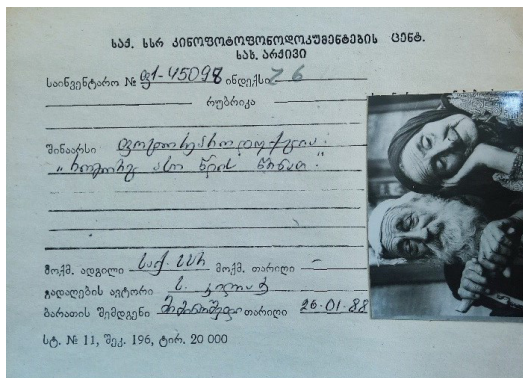 საქ. სსრ კინოფოტოფონოდოკუმენტების ცენტ.
სახ. არქივი
საინვენტარო № ფ1-45098 ინდექსი 26
რუბრიკა
შინაარსი ფოტორეპროდუქცია:
„როგორც ასი წლის წინათ."
მოქმ. ადგილი საქ. სსრ მოქმ. თარიღი —
გადაღების ავტორი ს.
ბარათის შემდგენი თარიღი 26-01-88
სტ. № 11, შეკ. 196, ტირ. 20 000